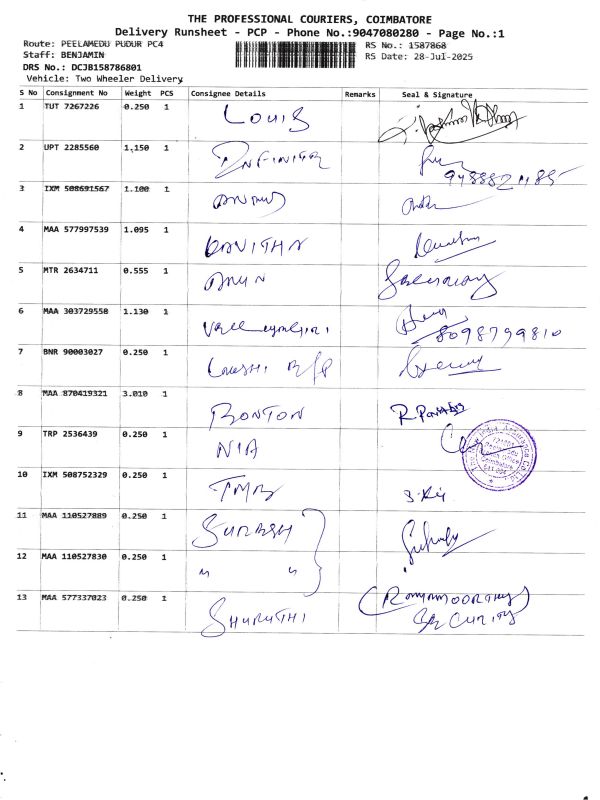 THE PROFESSIONAL COURIERS, COIMBATORE
Delivery Runsheet - PCP - Phone No.:9047080280 - Page No.:1
Route: PEELAMEDU PUDUR PC4 RS No.: 1587868
Staff: BENJAMIN RS Date: 28-Jul-2025
DRS No.: DCJB158786801
Vehicle: Two Wheeler Delivery
S No Consignment No Weight PCS Consignee Details Remarks Seal & Signature
1 TUT 7267226 0.250 1 LOUIS
2 UPT 2285560 1.150 1
9488821185
3 IXM 508691567 1.100 1
4 MAA 577997539 1.095 1 KAVITHA
5 MTR 2634711 0.555 1 ARUN
6 MAA 303729550 1.130 1
8098799810
7 BNR 90003027 0.250 1
8 MAA 870419321 3.010 1 RONTON
9 TRP 2536439 0.250 1 NIA
10 IXM 508752329 0.250 1 TMB
11 MAA 110527889 0.250 1 SURESH
12 MAA 110527830 0.250 1 " "
13 MAA 577337023 0.250 1 SHURUTHI (RAMAMOORTHY)
SECURITY